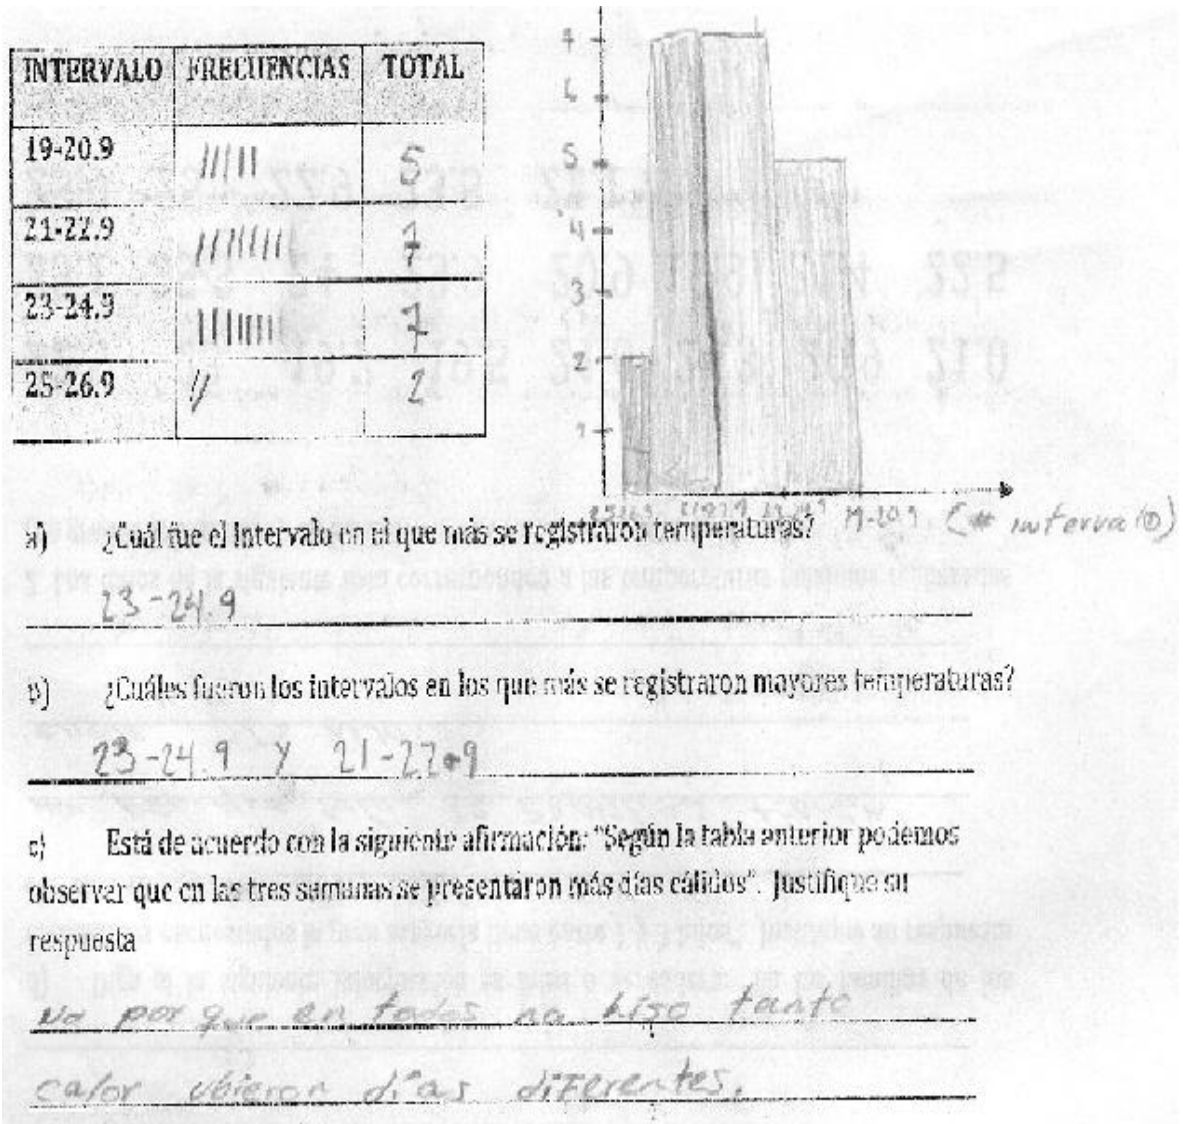 INTERVALO FRECUENCIAS TOTAL
19-20.9 5
21-22.9 7
23-24.9 7
25-26.9 2
7
6
5
4
3
2
1
19-20.9 (# intervalo)
a) ¿Cuál fue el intervalo en el que más se registraron temperaturas?
23-24.9
b) ¿Cuáles fueron los intervalos en los que más se registraron mayores temperaturas?
23-24.9 y 21-22.9
c) Está de acuerdo con la siguiente afirmación: "Según la tabla anterior podemos
observar que en las tres semanas se presentaron más días cálidos". Justifique su
respuesta
No por que en todos no hiso tanto
calor ubieron días diferentes.